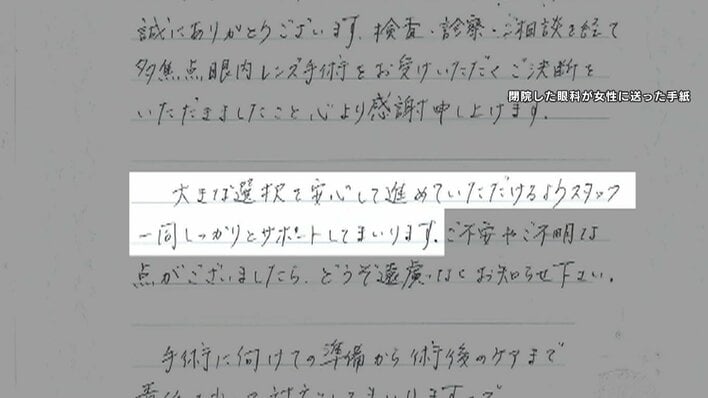 誠にありがとうございます。検査・診察・ご相談を経て
多焦点眼内レンズ手術をお受けいただくご決断を
いただきましたこと、心より感謝申し上げます。
閉院した眼科が女性に送った手紙
大きな選択を安心して進めていただけるようスタッフ
一同しっかりとサポートしてまいります。ご不安やご不明な
点がございましたら、どうぞ遠慮なくお知らせ下さい。
手術に向けての準備から術後のケアまで